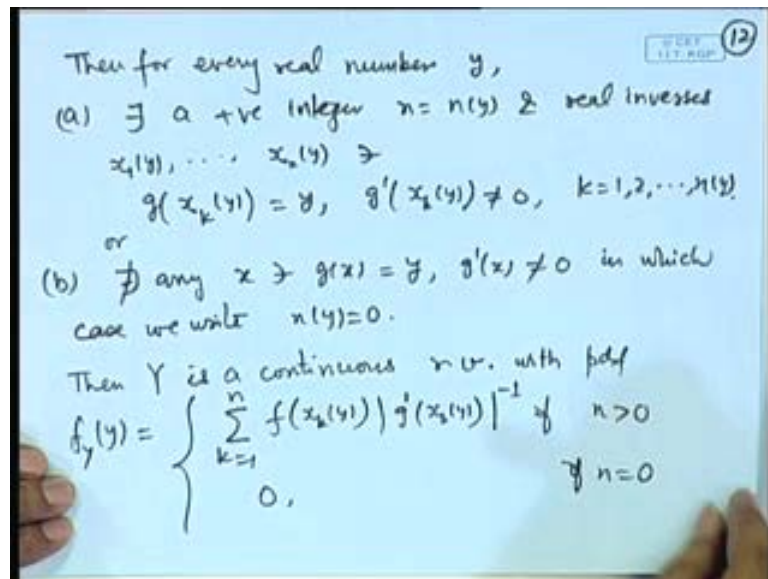 © CET
I.I.T. KGP
12
Then for every real number y,
(a) ∃ a +ve integer n = n(y) & real inverses
x₁(y), ···· xₙ(y) ∋
g(xₖ(y)) = y, g'(xₖ(y)) ≠ 0, k=1,2,···,n(y)
or
(b) ∄ any x ∋ g(x) = y, g'(x) ≠ 0 in which
case we write n(y)=0.
Then Y is a continuous r.v. with pdf
f_Y(y) = { ∑_{k=1}^{n} f(xₖ(y)) |g'(xₖ(y))|⁻¹ if n>0
0, if n=0